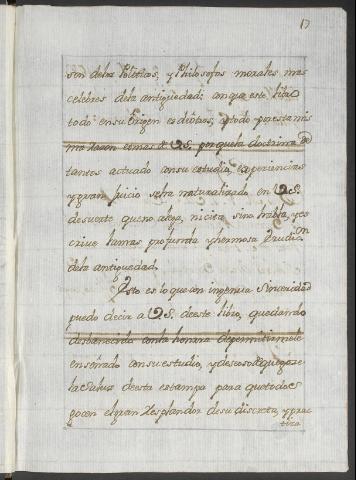 17
son delos Politicos, y Philosofos morales mas
celebres dela antiguedad; aunque este libro
todo ensu Origen es de otros; es todo por esta mis
ma razon es mas de V.S. porque la doctrina de
tantos actuado consu estudio, experiencias
y gran juicio se ha naturalizado en V.S.
desuerte que no alega, ni cita, sino habla, y es
crive la mas profunda y hermosa Erudicon
dela antiguedad.
Esto es lo que con ingenua Sinceridad
puedo decir a V.S. deeste libro, quedando
desvanecido conla honra de permitirmele
enseñado consu estudio, y deseoso de que goze
la Luz deesta estampa para que todos
gocen el gran Resplandor desu discreta, y prac
tica